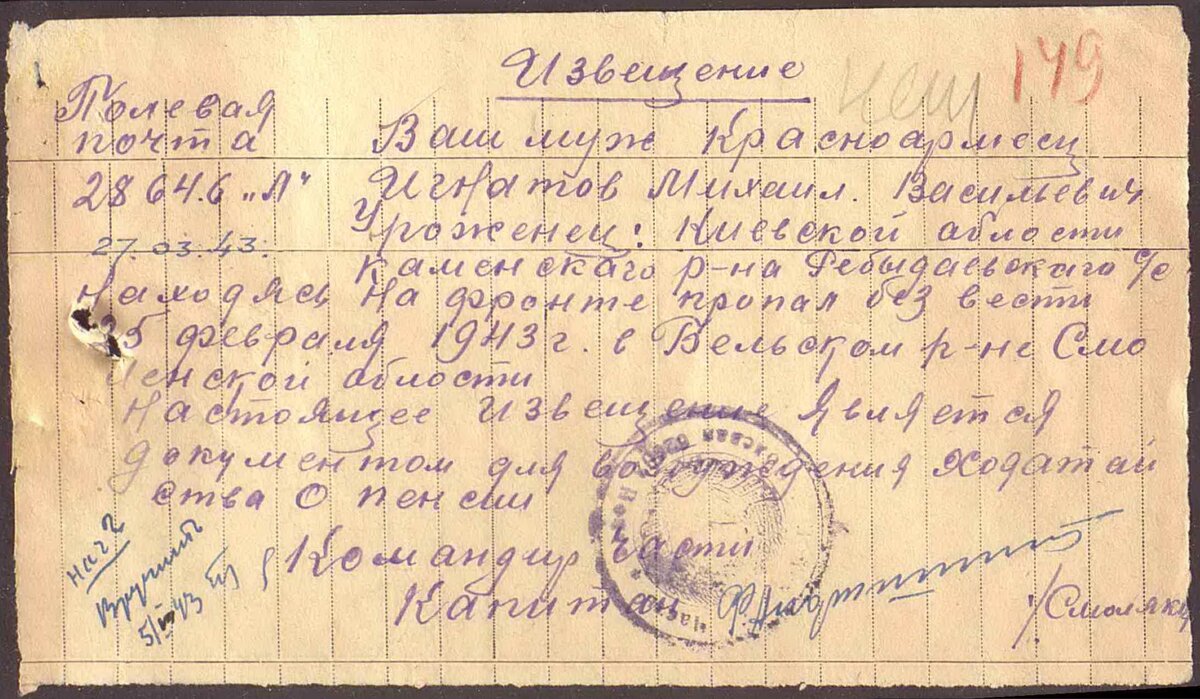 Извещение
149
Полевая
почта
28646 „Л"
27.03.43.
Ваш муж Красноармеец
Игнатов Михаил. Васильевич
Уроженец: Киевской области
Каменскаго р-на с/с
Находясь на фронте пропал без вести
25 февраля 1943 г. в Бельском р-не Смо
ленской области
Настоящее извещение является
документом для возбуждения ходатай
ства о пенсии
Командир части
Капитан
/Смоляк
нач 2
Вручить